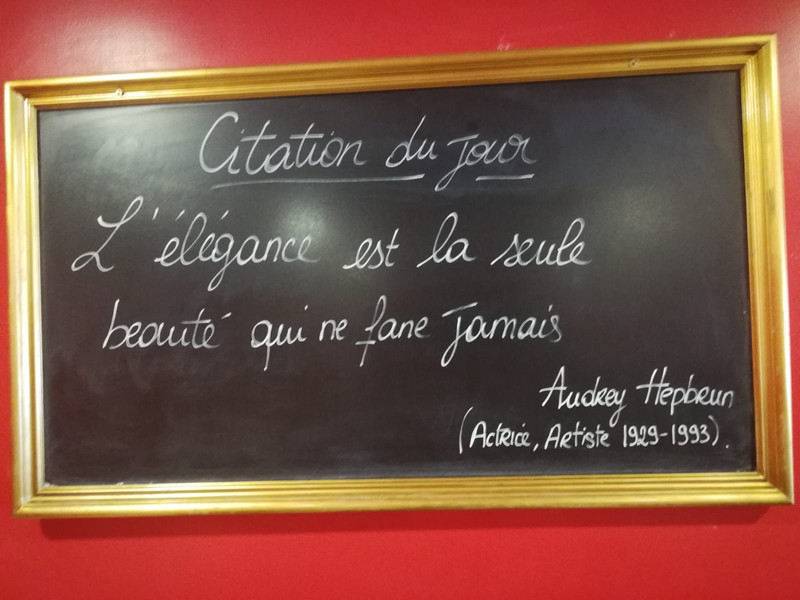 Citation du jour
L'élégance est la seule
beauté qui ne fane jamais
Audrey Hepbrun
(Actrice, Artiste 1929-1993).